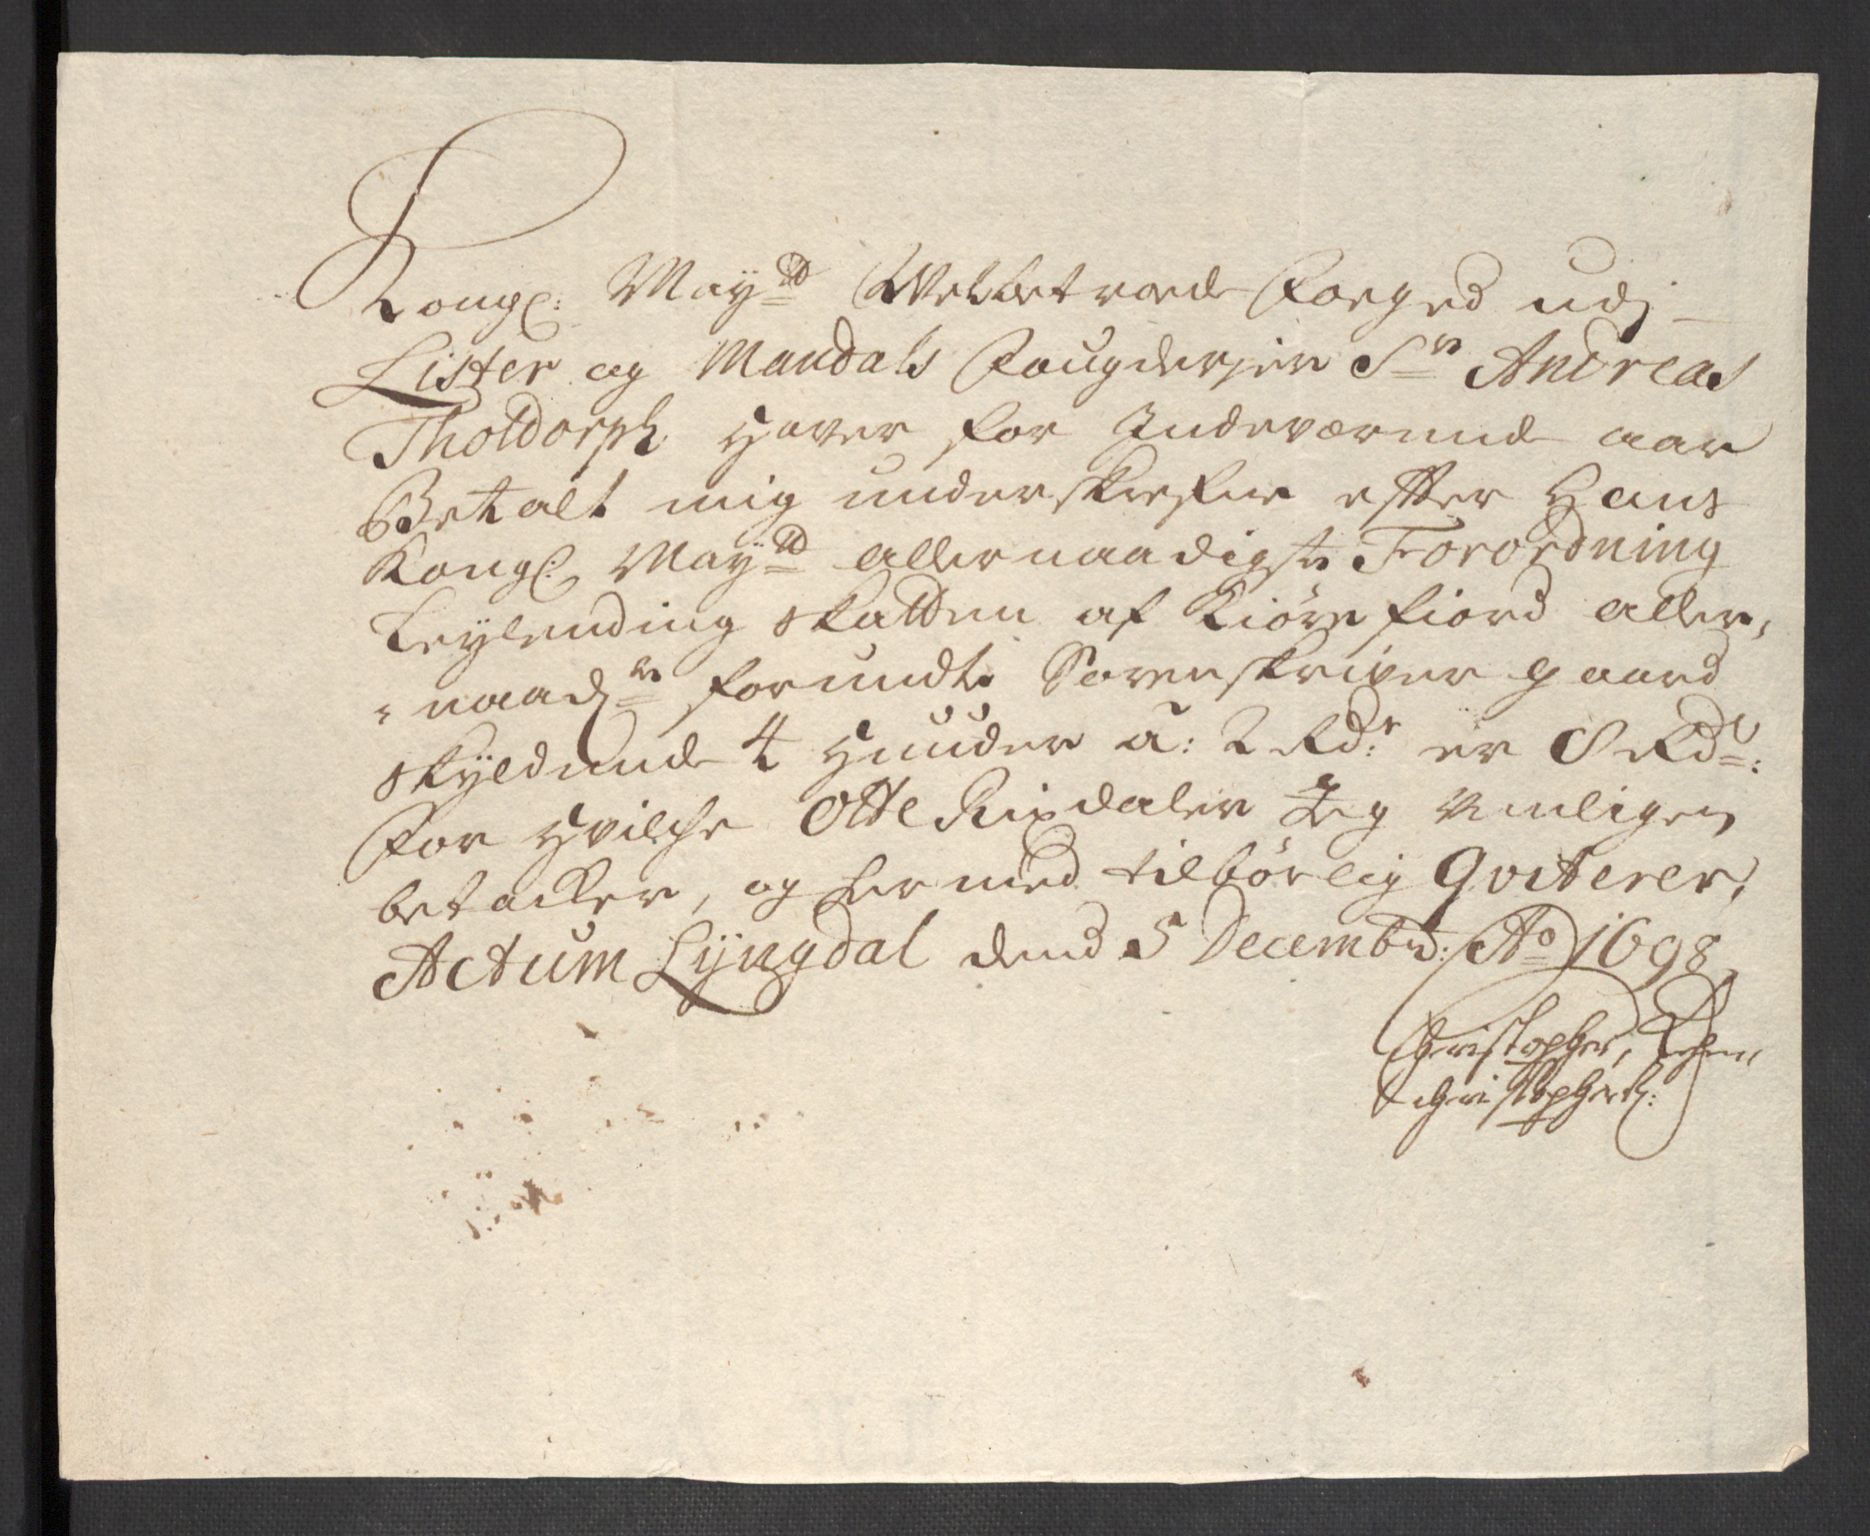 Kongl: May:tt Welbetroede Foeged udj
Lister og Mandals Fougderjer Sr Andreas
Tholdorph haver for Indeværende aar
Betalt mig underskrefne efter Hans
Kongl: May:tt allernaadigste Forordning
Leylending skatten af Kiørrefiord aller,
naadte forundte Sorenskriver gaard
skyldende 4 Huuder à: 2 Rdr er 8 Rdr:
For Hvilche Otte Rixdaler Jeg venligen
betacker, og hermed tilbørlig Qviterer,
Actum Lyngdal dend 5 Decembr: Ao 1698
Christopher
Christophers: